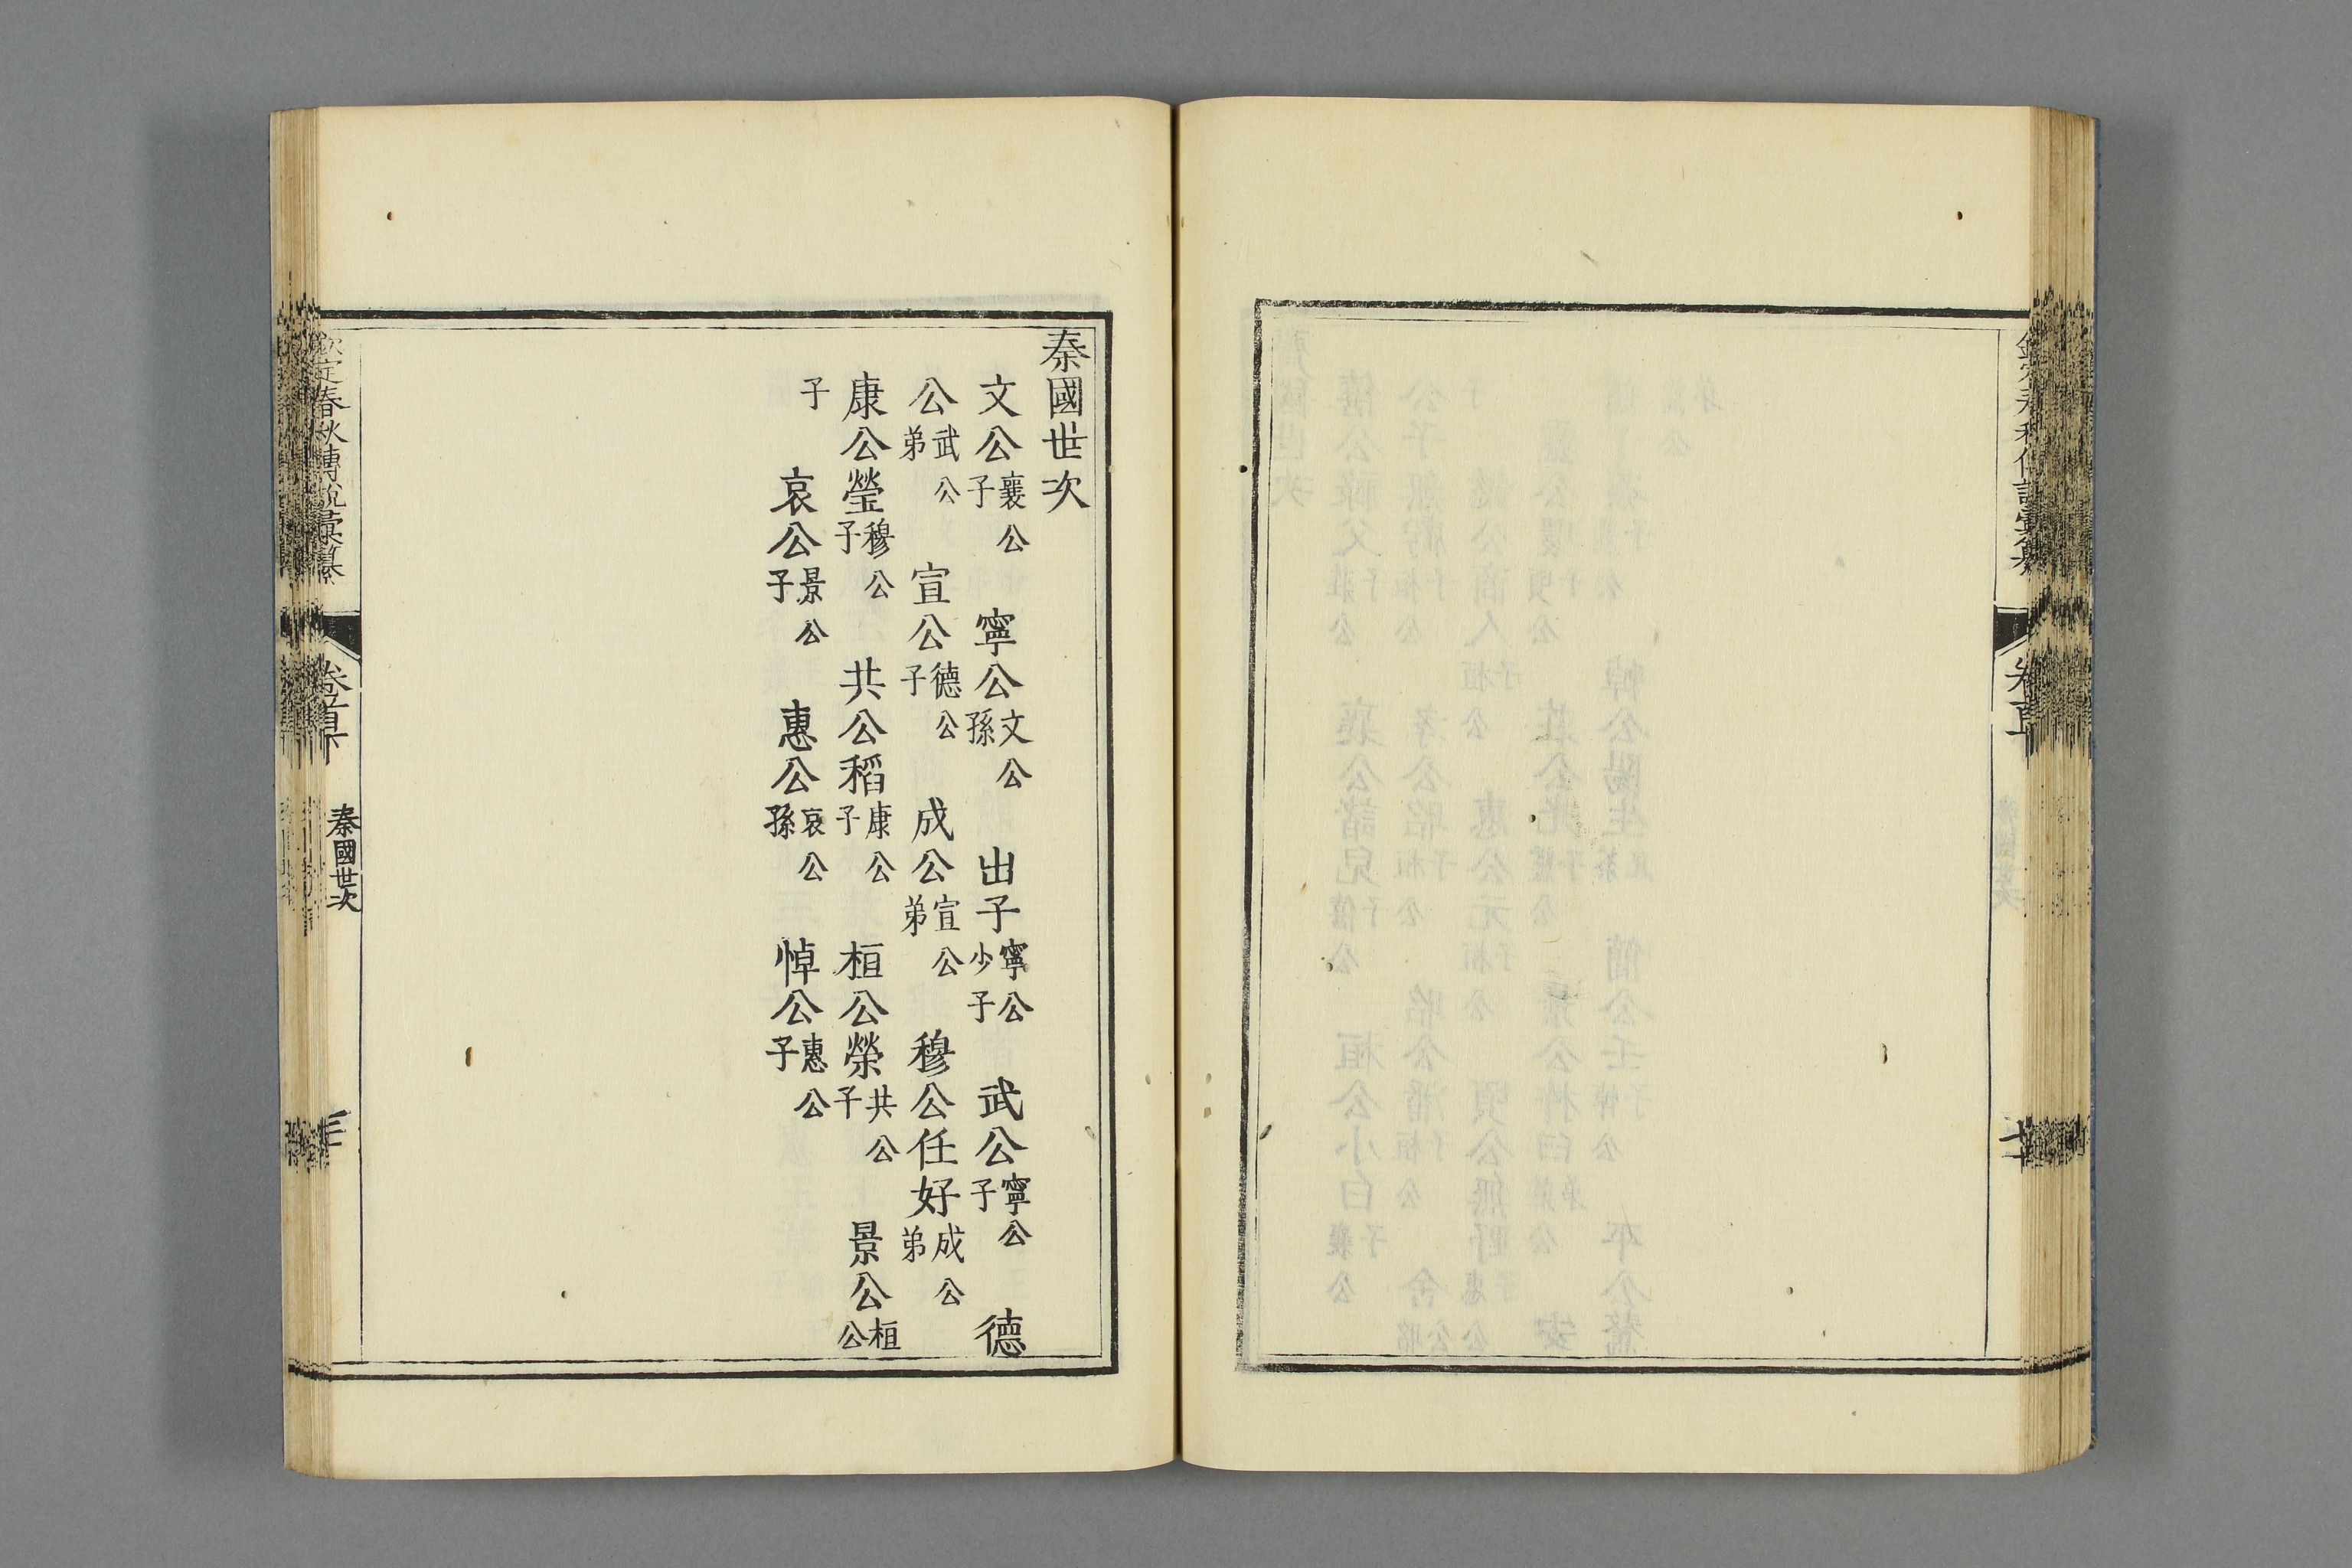 秦國世次
文公襄公子　寧公文公孫　出子寧公少子　武公寧公子　德
公武公弟　宣公德公子　成公宣公弟　穆公任好成公弟
康公瑩穆公子　共公稻康公子　桓公榮共公子　景公桓公
子　哀公景公子　惠公哀公孫　悼公惠公子
欽定春秋傳說彙纂　卷首下　秦國世次